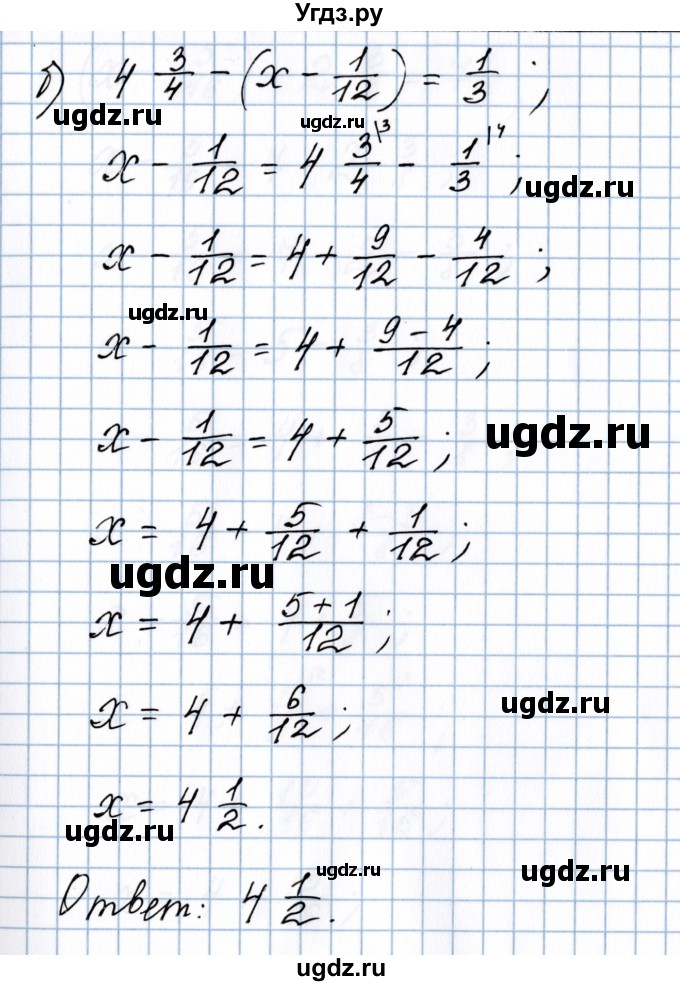 Угдз.ру
б) 4 3/4 − (x − 1/12) = 1/3 ;
ugdz.ru
ugdz.ru
x − 1/12 = 4 3/4 |3 − 1/3 |4 ;
ugdz.ru
x − 1/12 = 4 + 9/12 − 4/12 ;
ugdz.ru
x − 1/12 = 4 + (9 − 4)/12 ;
x − 1/12 = 4 + 5/12 ;
ugdz.ru
x = 4 + 5/12 + 1/12 ;
ugdz.ru
x = 4 + (5 + 1)/12 ;
x = 4 + 6/12 ;
ugdz.ru
x = 4 1/2 .
ugdz.ru
ugdz.ru
Ответ: 4 1/2 .
ugdz.ru